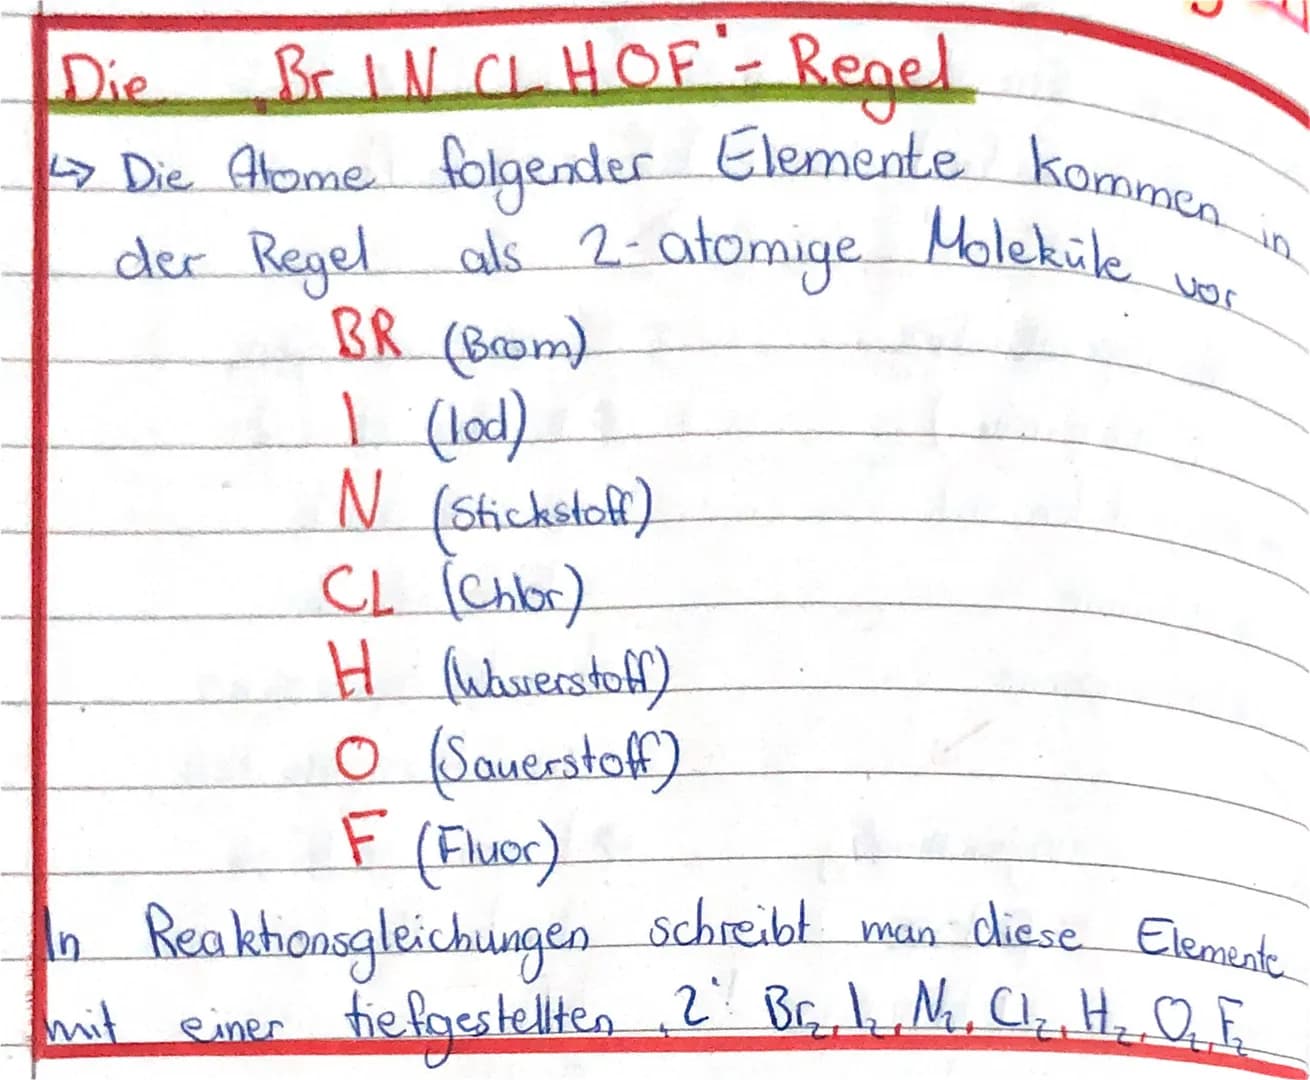 Die „Br I N CL H OF" - Regel
↳ Die Atome folgender Elemente kommen in
der Regel als 2-atomige Moleküle vor
BR (Brom)
I (Iod)
N (Stickstoff)
CL (Chlor)
H (Wasserstoff)
O (Sauerstoff)
F (Fluor)
In Reaktionsgleichungen schreibt man diese Elemente
mit einer tiefgestellten „2": Br₂, I₂, N₂, Cl₂, H₂, O₂, F₂